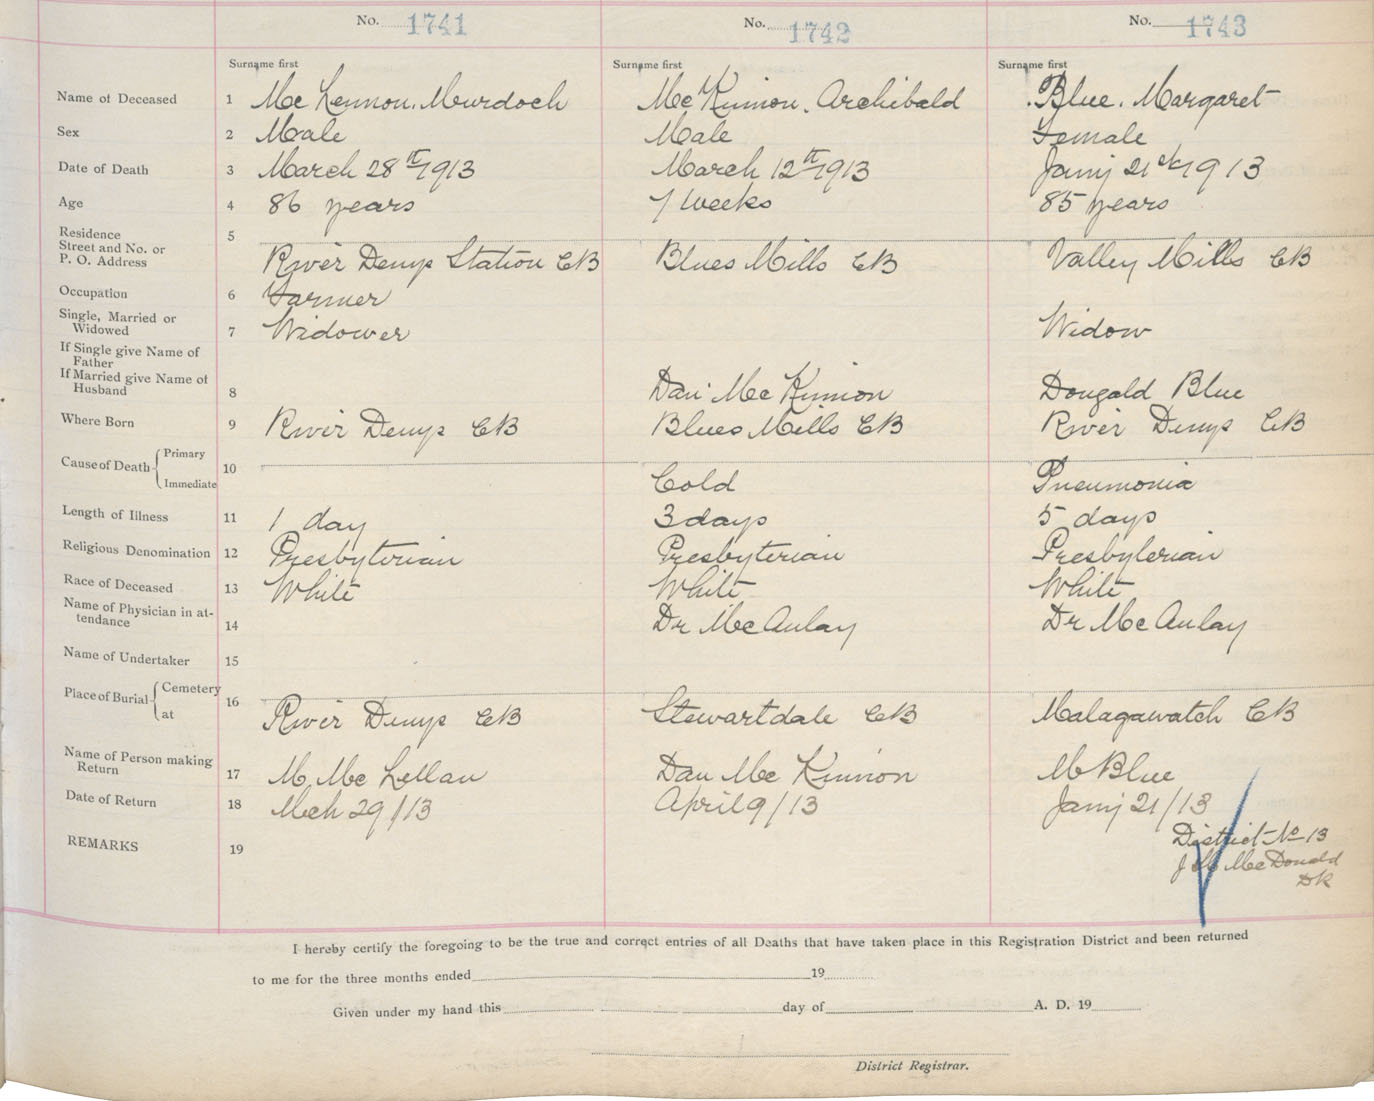 No. 1741 No. 1742 No. 1743
Surname first Surname first Surname first
Name of Deceased 1 Mc Lennon. Murdoch Mc Kinnon. Archibald Blue. Margaret
Sex 2 Male Male Female
Date of Death 3 March 28th 1913 March 12th 1913 Jany 21st 1913
Age 4 86 years 7 weeks 85 years
Residence 5
Street and No. or
P. O. Address River Denys Station CB Blues Mills CB Valley Mills CB
Occupation 6 Farmer
Single, Married or
Widowed 7 Widower Widow
If Single give Name of
Father
If Married give Name of
Husband 8 Dan Mc Kinnon Dougald Blue
Where Born 9 River Denys CB Blues Mills CB River Denys CB
Cause of Death Primary 10
Immediate Cold Pneumonia
Length of Illness 11 1 day 3 days 5 days
Religious Denomination 12 Presbyterian Presbyterian Presbyterian
Race of Deceased 13 White White White
Name of Physician in at-
tendance 14 Dr McAulay Dr McAulay
Name of Undertaker 15
Place of Burial Cemetery 16
at River Denys CB Stewartdale CB Malagawatch CB
Name of Person making
Return 17 M. Mc Lellan Dan Mc Kinnon M Blue
Date of Return 18 Mch 29/13 April 9/13 Jany 21/13
REMARKS 19 District No 13
J McDonald
DR
I hereby certify the foregoing to be the true and correct entries of all Deaths that have taken place in this Registration District and been returned
to me for the three months ended 19
Given under my hand this day of A. D. 19
District Registrar.